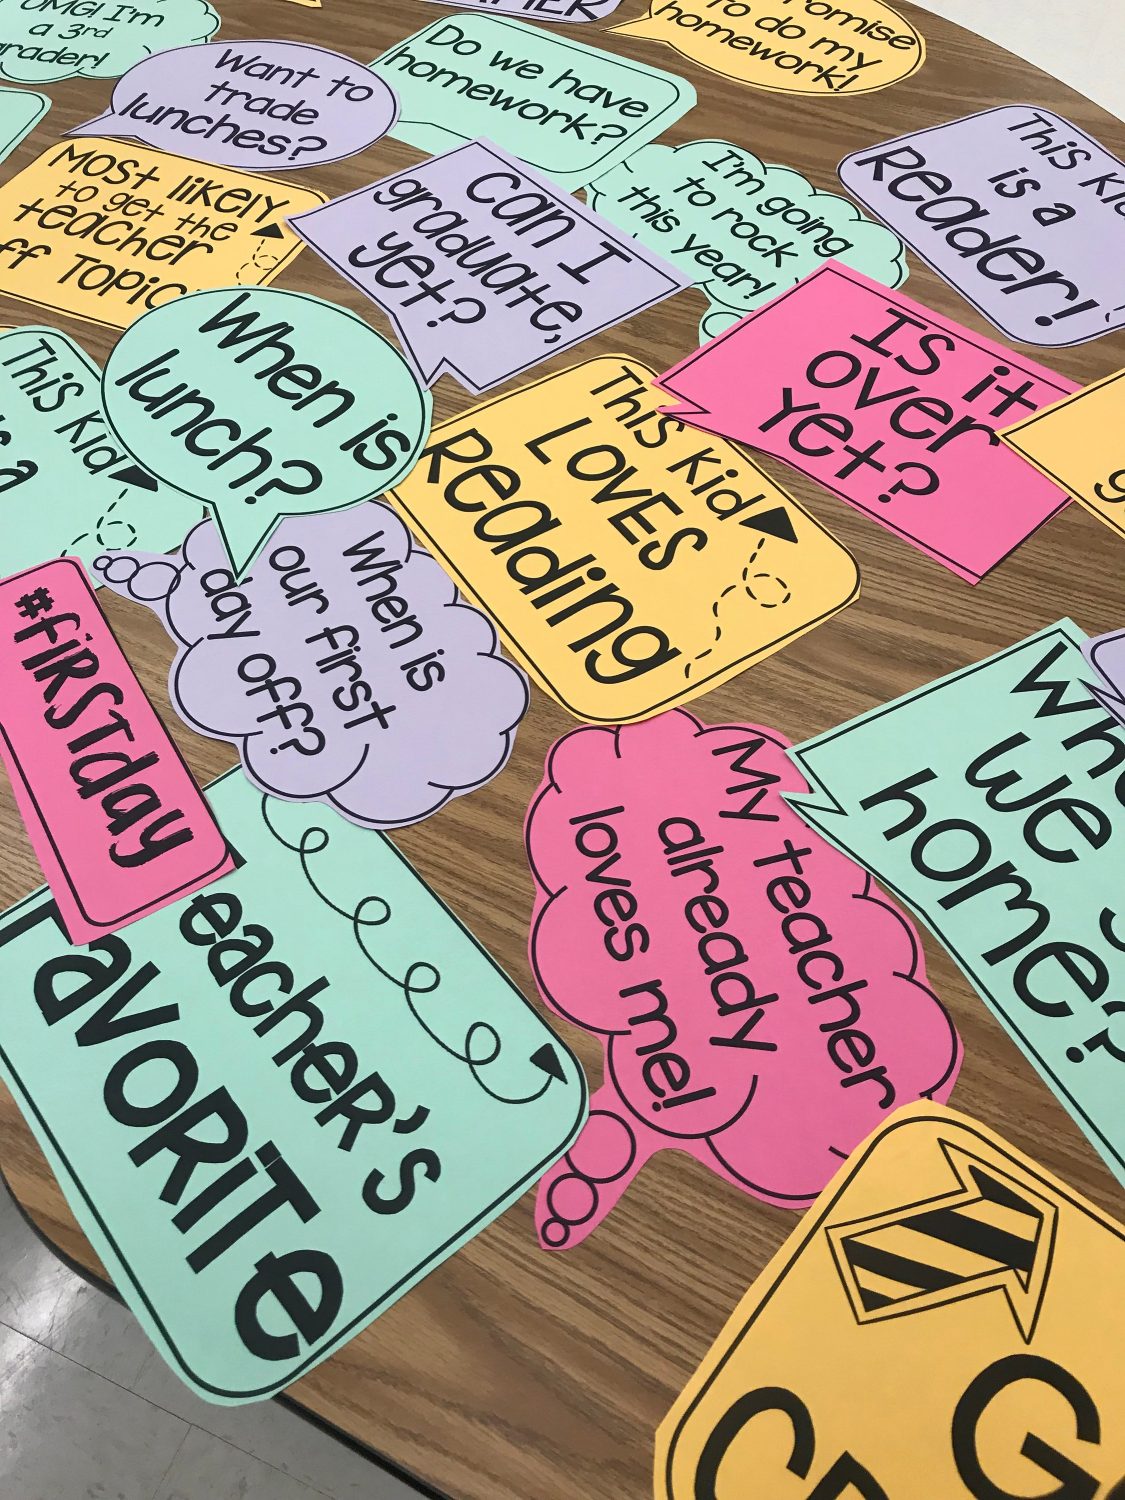 OMG! I'm
a 3rd
grader!
Want to
trade
lunches?
Do we have
homework?
to do my
homework!
Most likely
to get the
teacher
off Topic
Can I
graduate,
yet?
I'm going
to rock
this year!
This Kid
is a
Reader!
When is
lunch?
This Kid
LOVES
Reading
Is it
over
yet?
This Kid
is a
When is
our first
day off?
#firstday
Teacher's
Favorite
My teacher
already
loves me!
we
home?